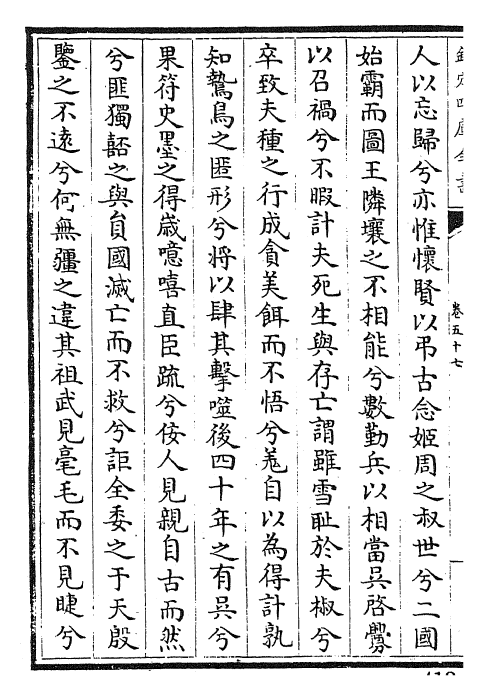 欽定四庫全書
卷五十七
人以忘歸兮亦惟懷賢以弔古念姬周之叔世兮二國
始霸而圖王隣壤之不相能兮數勤兵以相當吳啓釁
以召禍兮不暇計夫死生與存亡謂雖雪耻於夫椒兮
卒致夫種之行成貪美餌而不悟兮羗自以為得計孰
知鷙鳥之匿形兮將以肆其擊噬後四十年之有吳兮
果符史墨之得歲噫嘻直臣疏兮佞人見親自古而然
兮匪獨嚭之與貟國滅亡而不救兮詎全委之于天殷
鑒之不遠兮何無疆之違其祖武見毫毛而不見睫兮